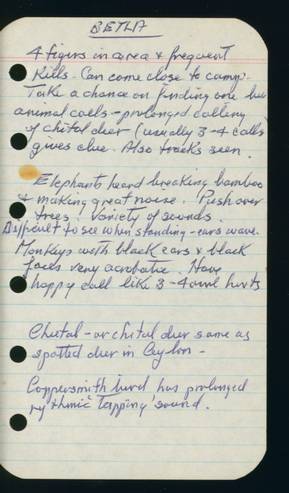 BETLA
4 tigers in area & frequent
kills. Can come close to camp.
Take a chance on finding one but
animal calls - prolonged calling
of chital deer (usually 3-4 calls)
gives clue. Also tracks seen.
Elephants heard breaking bamboo
& making great noise. Push over
trees! Variety of sounds.
Difficult to see when standing - ears wave.
Monkeys with black ears & black
faces very acrobatic. Have
happy call like 3-4 owl hoots
Cheetal - or chital deer same as
spotted deer in Ceylon -
Coppersmith bird has prolonged
rythmic tapping sound.